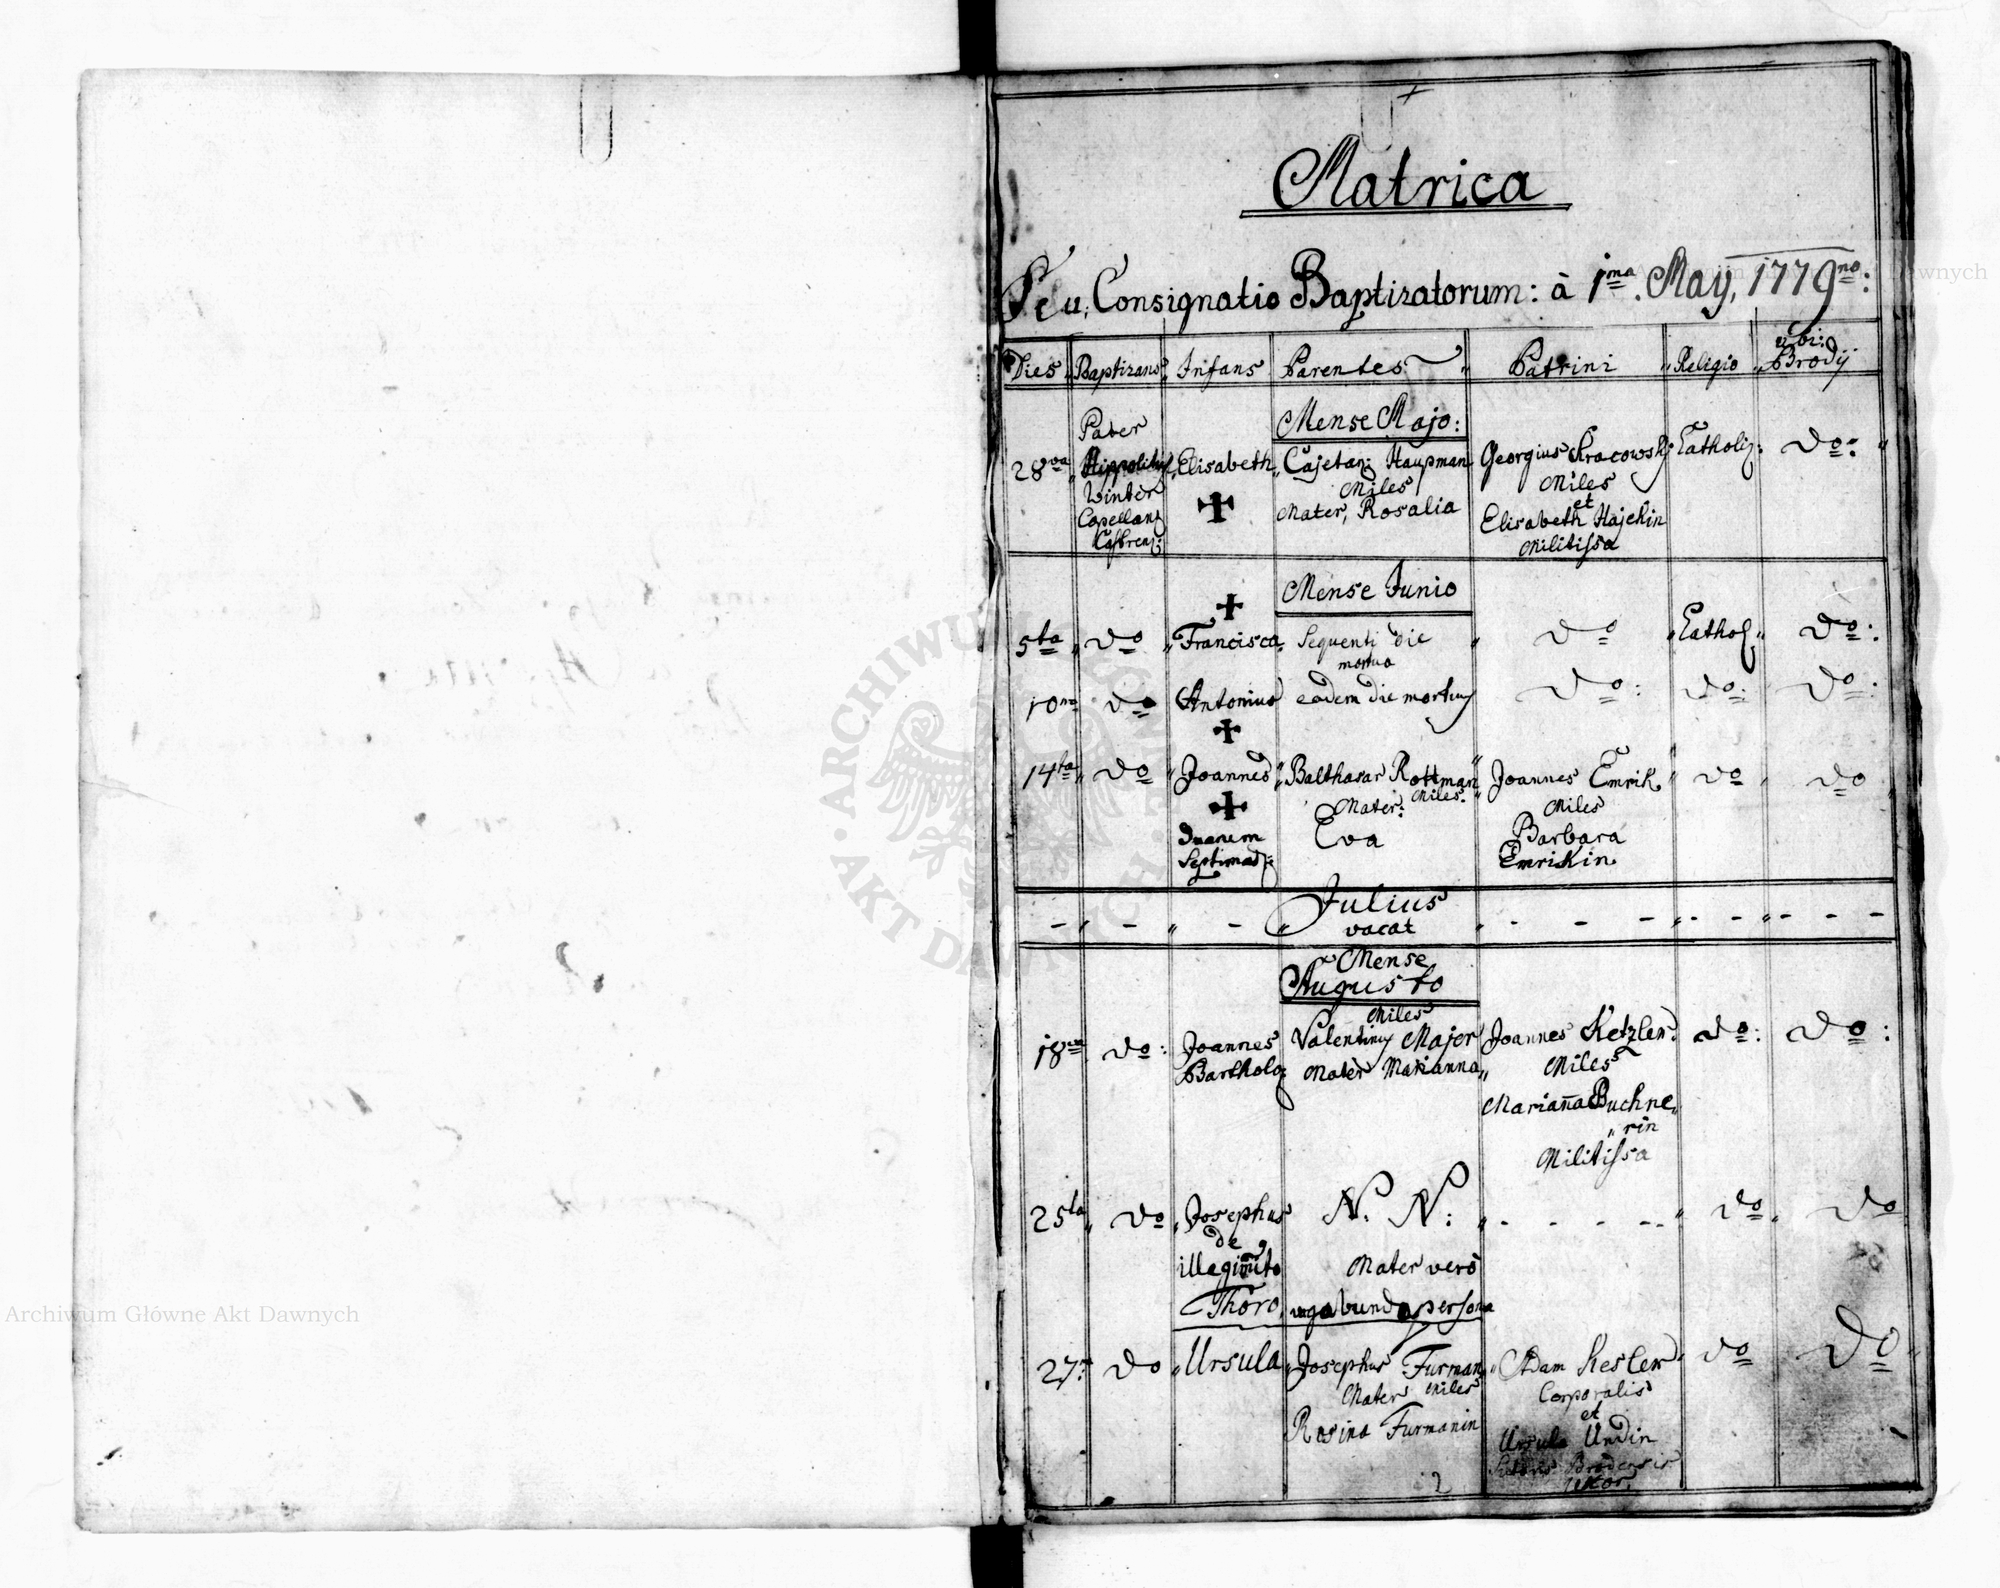 Matrica
Seu, Consignatio Baptizatorum: à 1ma. May, 1779no:
Dies Baptizans Infans Parentes Pattrini Religio ubi: Brodÿ
Mense Majo:
28va Pater Hippolitus Winter Capellanq Castrenq: Elisabeth Cajetanq Haupman Miles Mater, Rosalia Georgius Kracowskj Miles et Elisabeth Hajekin Militissa Catholiq: do:
Mense Junio
5ta do Francisca Sequenti die mortua do Cathol: do:
10ma do Antonius eadem die mortuq do: do: do:
14ta do Joannes Balthasar Rottman Miles. Joannes Emrik do do
Mater: Miles
Duarum Eva Barbara
Septimaq: Emrikin
Julius
vacat
Mense
Augusto
Miles
18va do: Joannes Valentinq Major Joannes Ketzler. do: do:
Bartholoq Mater Marianna Miles
Mariana Buchne„
„rin
Militissa
25ta do Josephus N. N: do do
de
illegimto Mater verò
Thoro, vagabunda persona
27ma do Ursula Josephus Furman Adam Kesler do do
Mater Miles Corporalis
et
Rosina Furmanin Ursula Undin
Brodensis
Uxor.
2
Archiwum Główne Akt Dawnych
Archiwum Główne Akt Dawnych
ARCHIWUM GŁÓWNE · AKT DAWNYCH ·